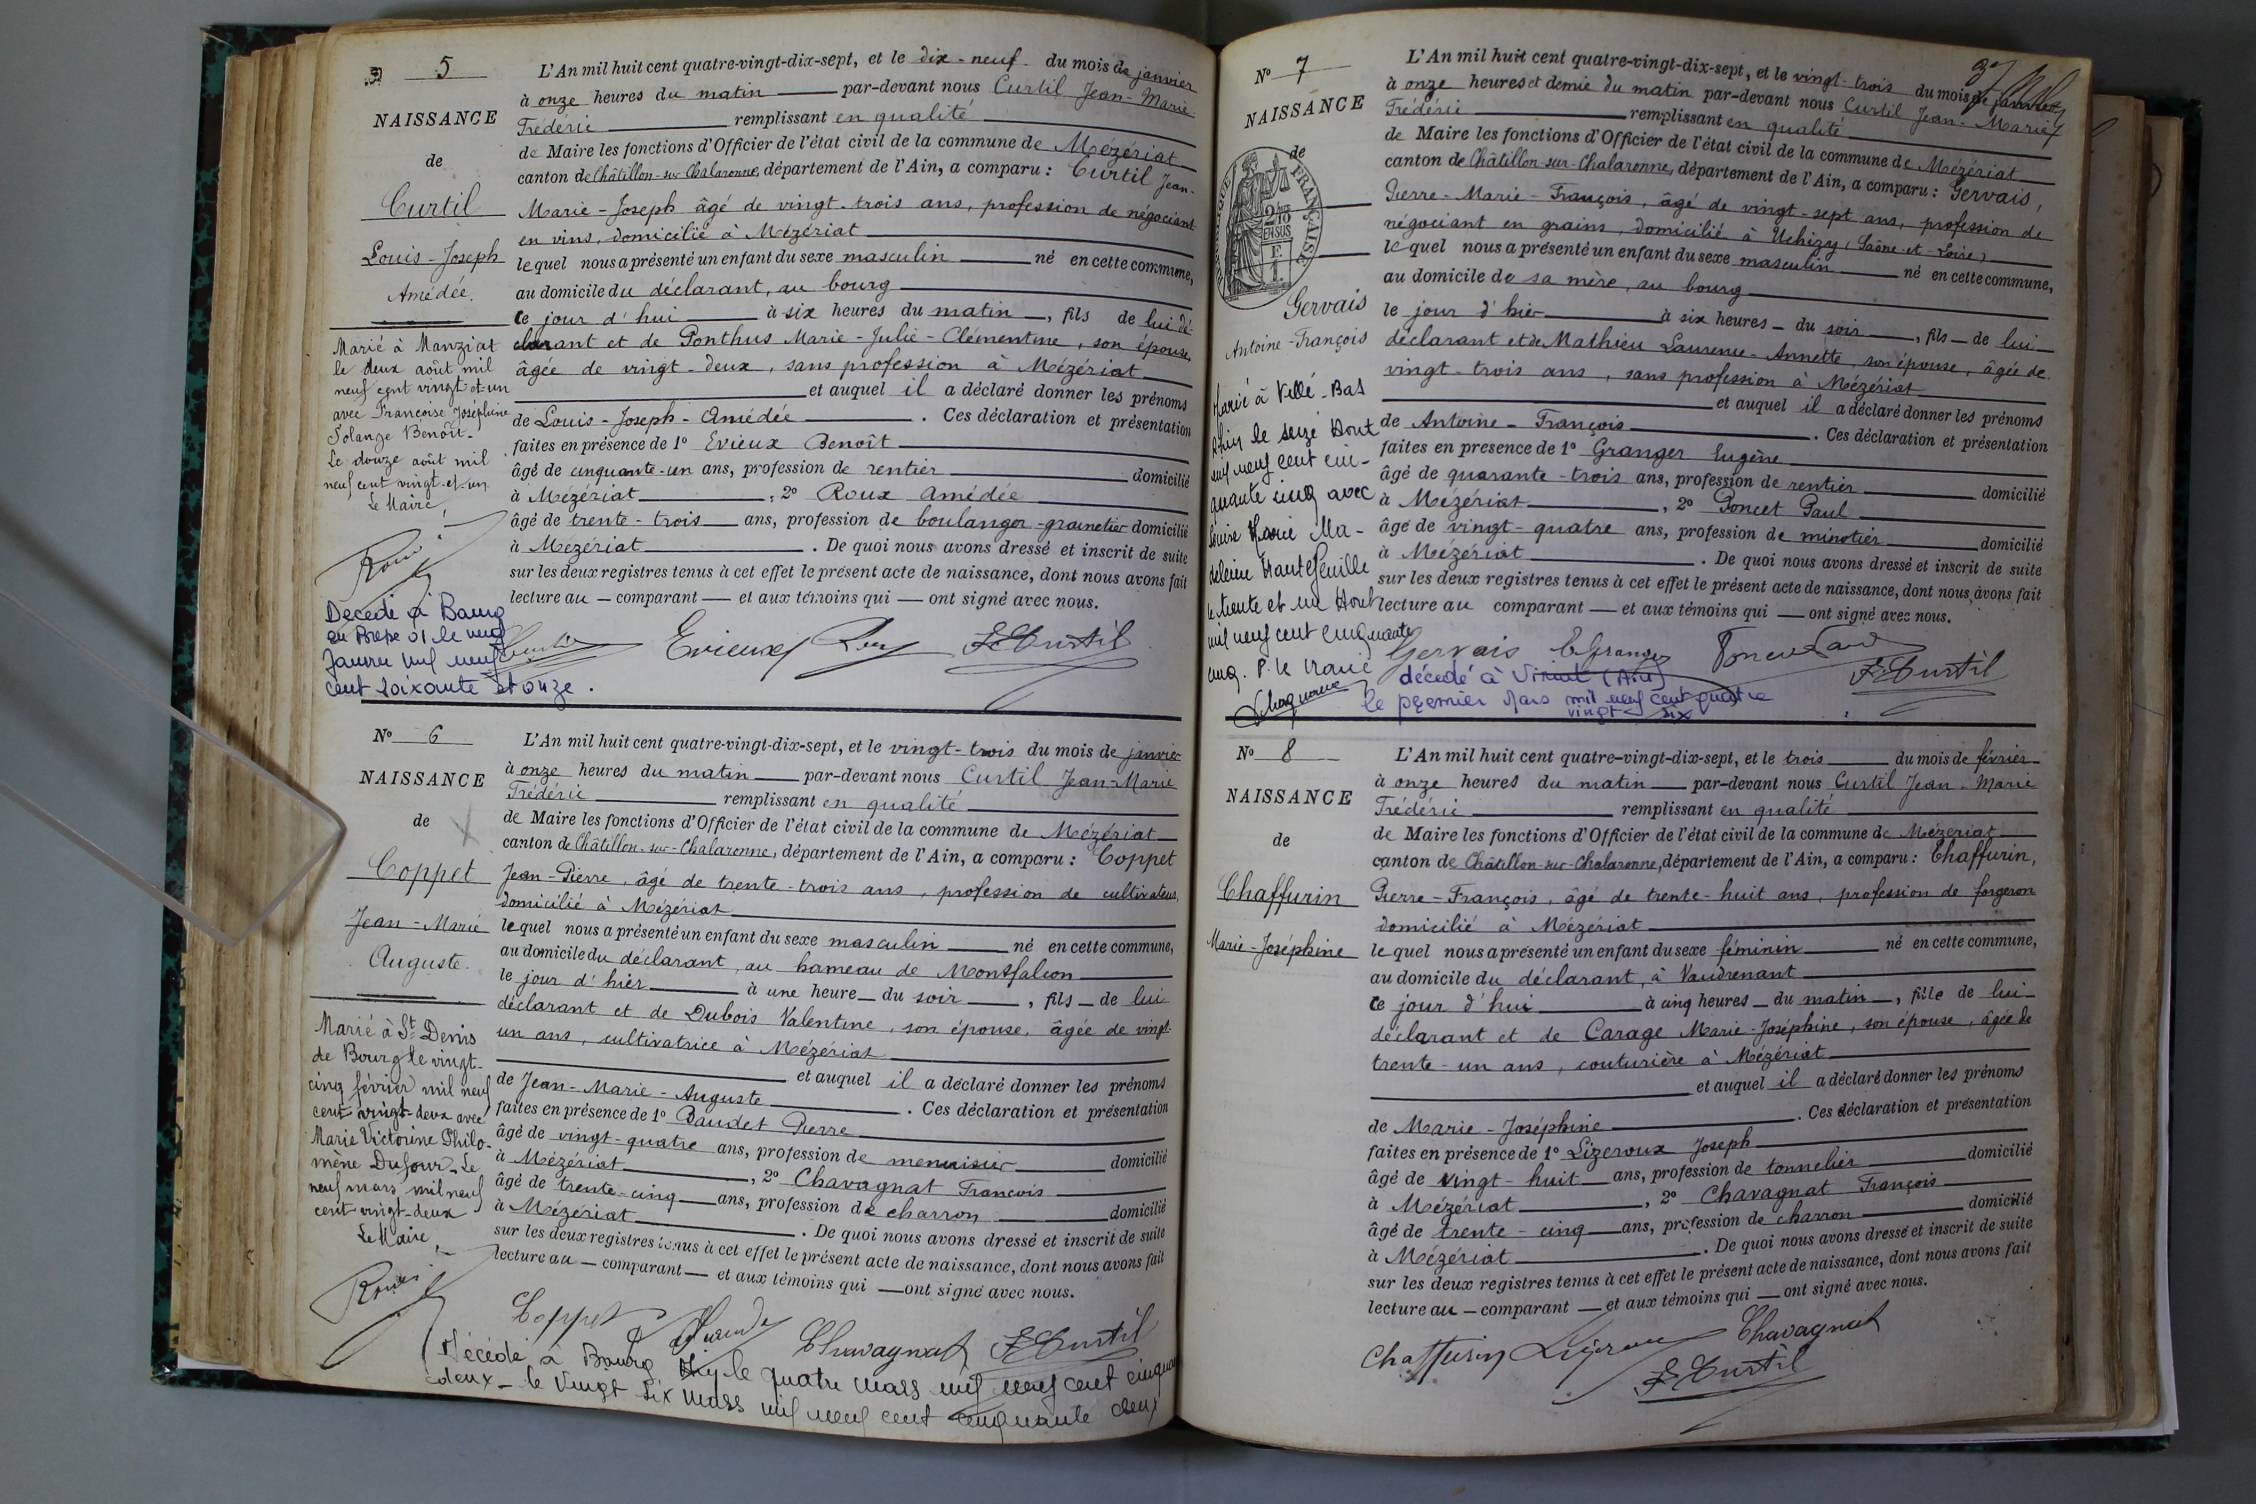 5
NAISSANCE
de
Curtil
Louis-Joseph
Amédée.
Marié à Manziat
le deux août mil
neuf cent vingt-et-un
avec Françoise Joséphine
Solange Benoît.
Le douze août mil
neuf cent vingt-et-un
Le Maire,
Décédé à Bourg
en Bresse 01 le neuf
Janvier mil neuf
cent soixante et onze.
L'An mil huit cent quatre-vingt-dix-sept, et le dix-neuf du mois de janvier
à onze heures du matin par-devant nous Curtil Jean-Marie
Frédéric remplissant en qualité
de Maire les fonctions d'Officier de l'état civil de la commune de Mézériat
canton de Châtillon-sur-Chalaronne, département de l'Ain, a comparu : Curtil Jean-
Marie-Joseph âgé de vingt-trois ans, profession de négociant
en vins, domicilié à Mézériat
lequel nous a présenté un enfant du sexe masculin né en cette commune,
au domicile du déclarant, au bourg
ce jour d'hui à six heures du matin, fils de lui dé-
clarant et de Ponthus Marie-Julie-Clémentine, son épouse,
âgée de vingt-deux, sans profession à Mézériat
et auquel il a déclaré donner les prénoms
de Louis-Joseph-Amédée. Ces déclaration et présentation
faites en présence de 1° Evieux Benoît
âgé de cinquante-un ans, profession de rentier domicilié
à Mézériat, 2° Roux Amédée
âgé de trente-trois ans, profession de boulanger-grainetier domicilié
à Mézériat. De quoi nous avons dressé et inscrit de suite
sur les deux registres tenus à cet effet le présent acte de naissance, dont nous avons fait
lecture au comparant et aux témoins qui ont signé avec nous.
Evieux F Curtil
N° 6
NAISSANCE
de
Coppet
Jean-Marie
Auguste.
Marié à St Denis
de Bourg le vingt-
cinq février mil neuf
cent vingt-deux avec
Marie Victorine Philo-
mène Dufour. Le
neuf mars mil neuf
cent vingt-deux
Le Maire,
L'An mil huit cent quatre-vingt-dix-sept, et le vingt-trois du mois de janvier
à onze heures du matin par-devant nous Curtil Jean-Marie
Frédéric remplissant en qualité
de Maire les fonctions d'Officier de l'état civil de la commune de Mézériat
canton de Châtillon-sur-Chalaronne, département de l'Ain, a comparu : Coppet
Jean-Pierre, âgé de trente-trois ans, profession de cultivateur,
domicilié à Mézériat
lequel nous a présenté un enfant du sexe masculin né en cette commune,
au domicile du déclarant, au hameau de Montfalcon
le jour d'hier à une heure du soir, fils de lui
déclarant et de Dubois Valentine, son épouse, âgée de vingt-
un ans, cultivatrice à Mézériat
et auquel il a déclaré donner les prénoms
de Jean-Marie-Auguste. Ces déclaration et présentation
faites en présence de 1° Baudet Pierre
âgé de vingt-quatre ans, profession de menuisier domicilié
à Mézériat, 2° Chavagnat François
âgé de trente-cinq ans, profession de charron domicilié
à Mézériat. De quoi nous avons dressé et inscrit de suite
sur les deux registres tenus à cet effet le présent acte de naissance, dont nous avons fait
lecture au comparant et aux témoins qui ont signé avec nous.
Coppet Chavagnat F Curtil
Décédé à Bourg Ain le quatre mars mil neuf cent cinquante
deux - le Vingt six mars mil neuf cent cinquante deux
N° 7
NAISSANCE
de
FRANÇAISE
2/10 EN SUS
Gervais
Antoine-François
Marié à Vellé-Bas
le seize Aout
mil neuf cent cin-
quante cinq avec
Louise Marie Ma-
deleine Hautefeuille
le trente et un Aout
mil neuf cent cinquante
cinq. P. le Maire
L'An mil huit cent quatre-vingt-dix-sept, et le vingt-trois du mois de janvier
à onze heures et demie du matin par-devant nous Curtil Jean-Marie
Frédéric remplissant en qualité
de Maire les fonctions d'Officier de l'état civil de la commune de Mézériat
canton de Châtillon-sur-Chalaronne, département de l'Ain, a comparu : Gervais,
Pierre-Marie-François, âgé de vingt-sept ans, profession de
négociant en grains, domicilié à Uchizy, (Saône-et-Loire)
lequel nous a présenté un enfant du sexe masculin né en cette commune,
au domicile de sa mère, au bourg
le jour d'hier à six heures du soir, fils de lui
déclarant et de Mathieu Laurence-Annette, son épouse, âgée de
vingt-trois ans, sans profession à Mézériat
et auquel il a déclaré donner les prénoms
de Antoine-François. Ces déclaration et présentation
faites en présence de 1° Granger Eugène
âgé de quarante-trois ans, profession de rentier domicilié
à Mézériat, 2° Poncet Paul
âgé de vingt-quatre ans, profession de minotier domicilié
à Mézériat. De quoi nous avons dressé et inscrit de suite
sur les deux registres tenus à cet effet le présent acte de naissance, dont nous avons fait
lecture au comparant et aux témoins qui ont signé avec nous.
Gervais E Granger Poncet Paul F Curtil
décédé à Viriat (Ain)
le premier Mars mil neuf cent quatre
vingt six
N° 8
NAISSANCE
de
Chaffurin
Marie-Joséphine
L'An mil huit cent quatre-vingt-dix-sept, et le trois du mois de février
à onze heures du matin par-devant nous Curtil Jean-Marie
Frédéric remplissant en qualité
de Maire les fonctions d'Officier de l'état civil de la commune de Mézériat
canton de Châtillon-sur-Chalaronne, département de l'Ain, a comparu : Chaffurin,
Pierre-François, âgé de trente-huit ans, profession de forgeron
domicilié à Mézériat
lequel nous a présenté un enfant du sexe féminin né en cette commune,
au domicile du déclarant, à Vaudrenant
ce jour d'hui à cinq heures du matin, fille de lui
déclarant et de Carage Marie-Joséphine, son épouse, âgée de
trente-un ans, couturière à Mézériat
et auquel il a déclaré donner les prénoms
de Marie-Joséphine. Ces déclaration et présentation
faites en présence de 1° Lizeroux Joseph
âgé de vingt-huit ans, profession de tonnelier domicilié
à Mézériat, 2° Chavagnat François
âgé de trente-cinq ans, profession de charron domicilié
à Mézériat. De quoi nous avons dressé et inscrit de suite
sur les deux registres tenus à cet effet le présent acte de naissance, dont nous avons fait
lecture au comparant et aux témoins qui ont signé avec nous.
Chaffurin Lizeroux Chavagnat
F Curtil